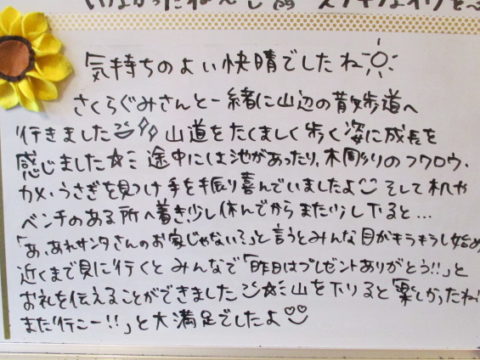 気持ちのよい快晴でしたね
さくらぐみさんと一緒に山辺の散歩道へ
行きました 山道をたくましく歩く姿に成長を
感じました 途中には池があったり、木周りのフクロウ、
カメ、うさぎを見つけ手を振り喜んでいましたよ そして机や
ベンチのある所へ着き少し休んでからまた少し下ると…
「あ、あれサンタさんのお家じゃない?」と言うとみんな目がキラキラし始め
近くまで見に行くとみんなで「昨日はプレゼントありがとう!!」と
お礼を伝えることができました 山を下りると「楽しかったね!
また行こー!!」と大満足でしたよ